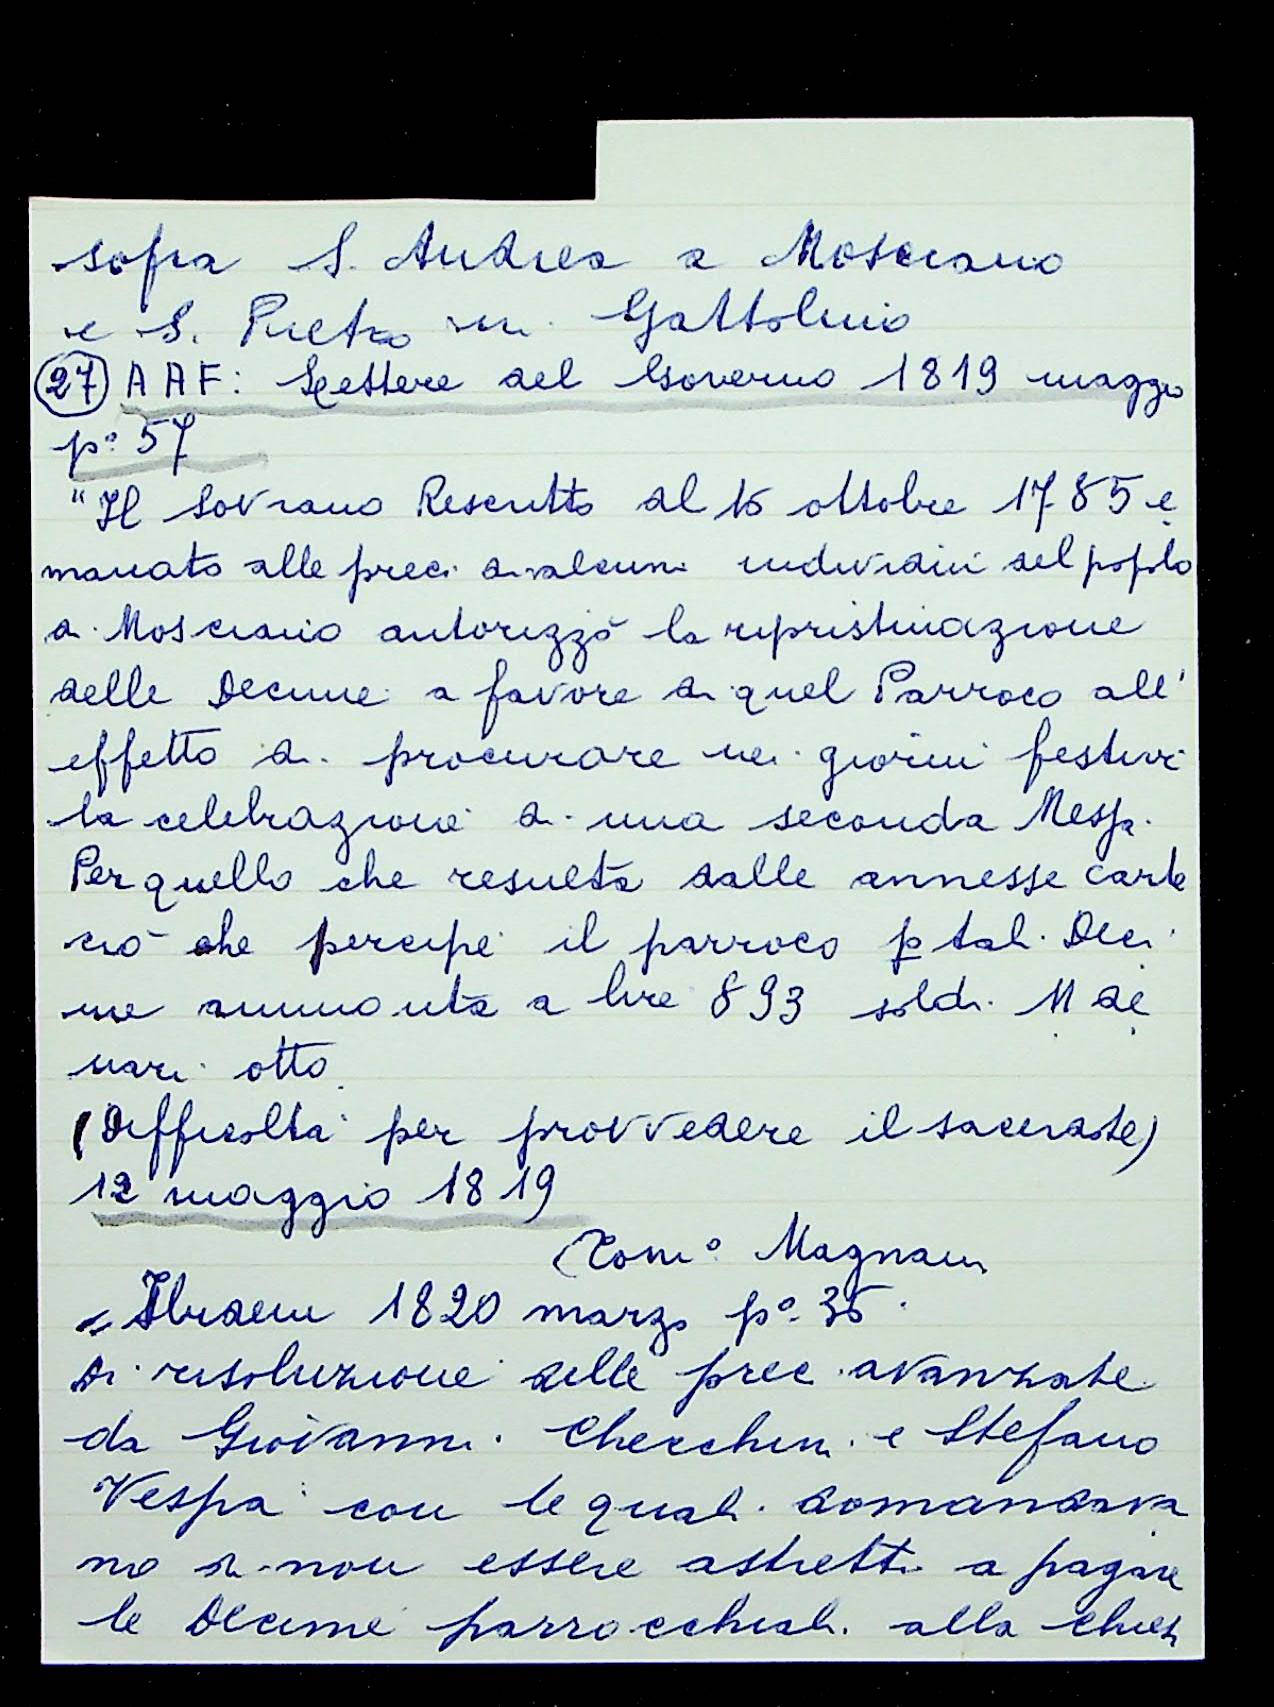 sopra S. Andrea a Mosciano
e S. Pietro in Gattolino
27 AAF: Lettere del Governo 1819 maggio
p.º 57
"Il Sovrano Rescritto del 15 ottobre 1785 e
manato alle preci di alcuni individui del popolo
di Mosciano autorizzò la ripristinazione
delle Decime a favore di quel Parroco all'
effetto di procurare nei giorni festivi
la celebrazione di una seconda Messa.
Per quello che resulta dalle annesse carte
ciò che percipe il parroco p tali Deci
me ammonta a lire 893 soldi 11 de
nari otto
(Difficoltà per provvedere il sacerdote)
12 maggio 1819
(Tomº Magnani
= Ibidem 1820 marzo pº 35.
Di risoluzione delle preci avanzate
da Giovanni Checchini e Stefano
Vespa con le quali domandava
no di non essere astretti a pagare
le Decime parrocchiali alla chies